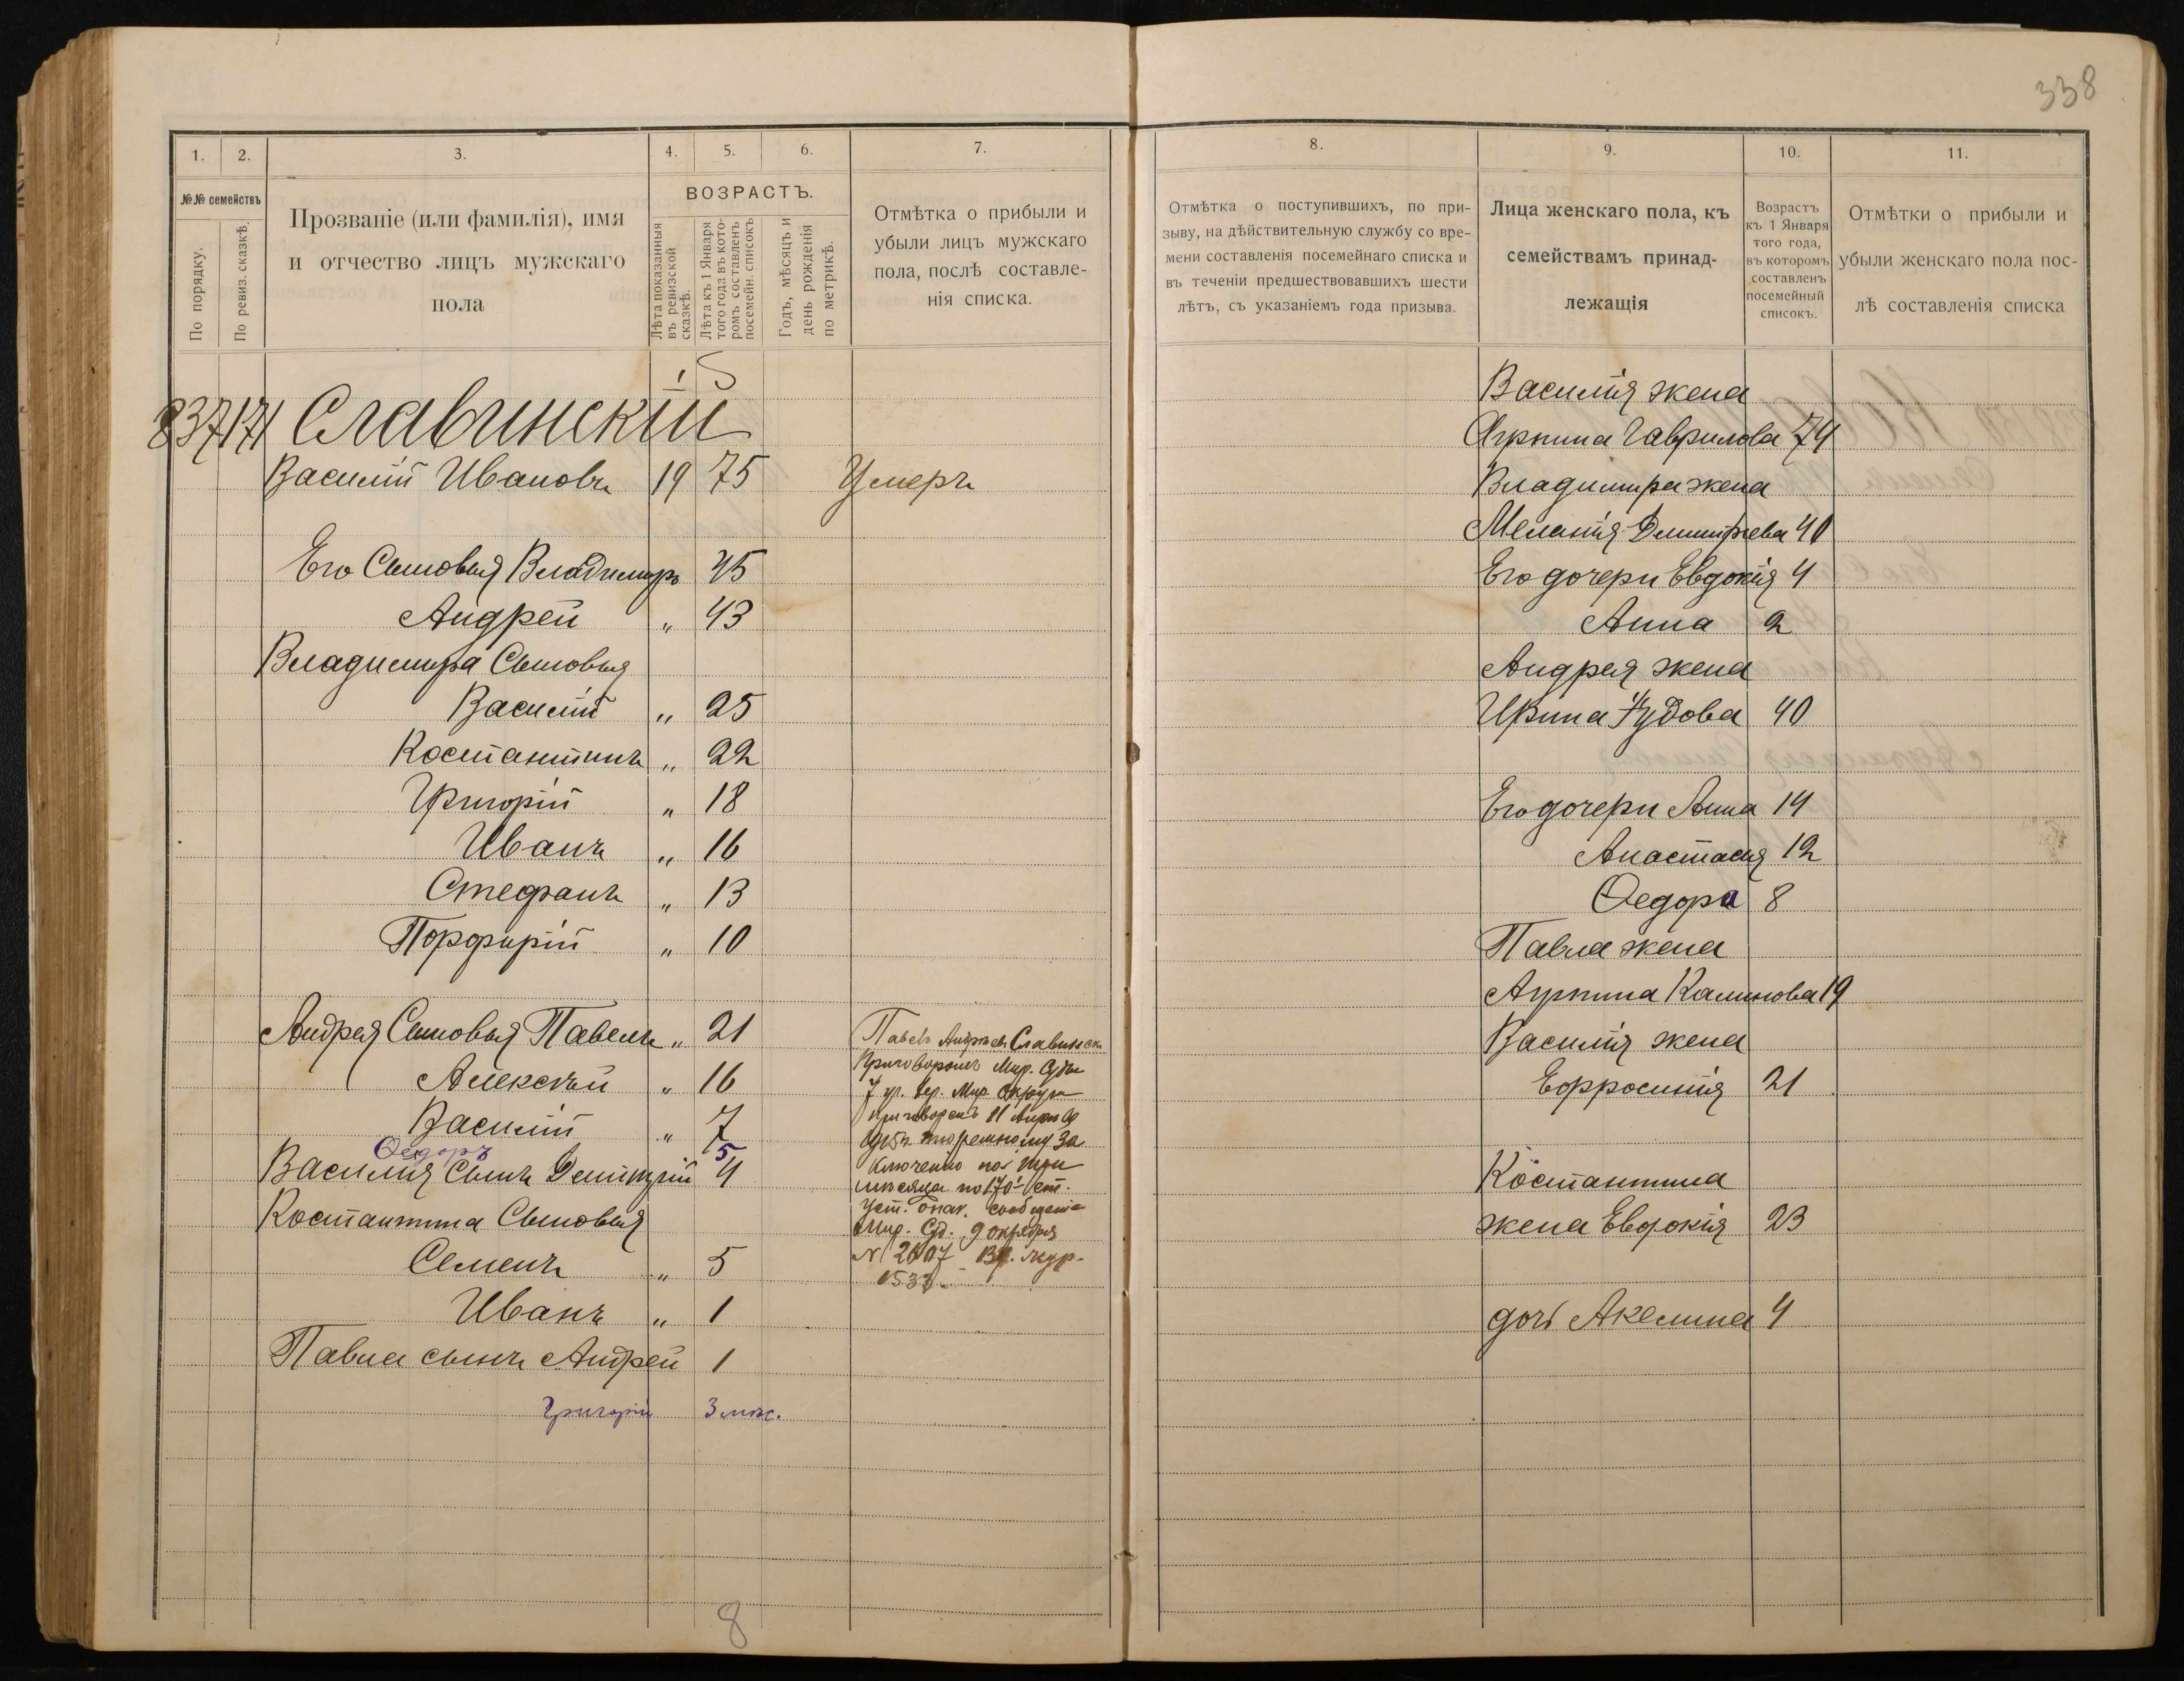 338
1. 2. 3. 4. 5. 6. 7.
№№ семействъ
По порядку.
По ревиз. сказкѣ.
Прозваніе (или фамилія), имя
и отчество лицъ мужскаго
пола
ВОЗРАСТЪ.
Лѣта показанныя
въ ревизской
сказкѣ.
Лѣта къ 1 Января
того года въ кото-
ромъ составленъ
посемейн. списокъ
Годъ, мѣсяцъ и
день рожденія
по метрикѣ.
Отмѣтка о прибыли и
убыли лицъ мужскаго
пола, послѣ составле-
нія списка.
837 171 Славинскій
Василій Ивановъ 19 75 Умеръ
Его Сыновья Владимиръ 45
Андрей " 43
Владимира Сыновья
Василій " 25
Костантинъ " 22
Григорій " 18
Иванъ " 16
Стефанъ " 13
Порфирій " 10
Андрея Сыновья Павелъ " 21
Алексѣй " 16
Василій " 7
Ѳедоръ 5
Василия Сынъ Демитрій 4
Костантина Сыновья
Семенъ " 5
Иванъ " 1
Павла сынъ Андрей 1
Григорій 3 мѣс.
Павелъ Андреевъ Славинск
Приговоромъ Мир. Судьи
7 уч. Мир. Округа
приговоренъ 11
тюремному За
ключенію на три
мѣсяца по 170 ст.
Уст. о нак. сообщеніе
Мир. Суд. 9 октября
N 2607
8
8. 9. 10. 11.
Отмѣтка о поступившихъ, по при-
зыву, на дѣйствительную службу со вре-
мени составленія посемейнаго списка и
въ теченіи предшествовавшихъ шести
лѣтъ, съ указаніемъ года призыва.
Лица женскаго пола, къ
семействамъ принад-
лежащія
Возрастъ
къ 1 Января
того года,
въ которомъ
составленъ
посемейный
списокъ.
Отмѣтки о прибыли и
убыли женскаго пола пос-
лѣ составленія списка
Василія жена
Агрипина Гаврилова 74
Владимира жена
Меланія Димитрева 40
Его дочери Евдокія 4
Анна 2
Андрея жена
Ирина 40
Его дочери Анна 14
Анастасия 12
Ѳедора 8
Павла жена
Агрипина Калинова 19
Василія жена
Ефросинія 21
Костантина
жена Евдокія 23
дочь Акелина 4